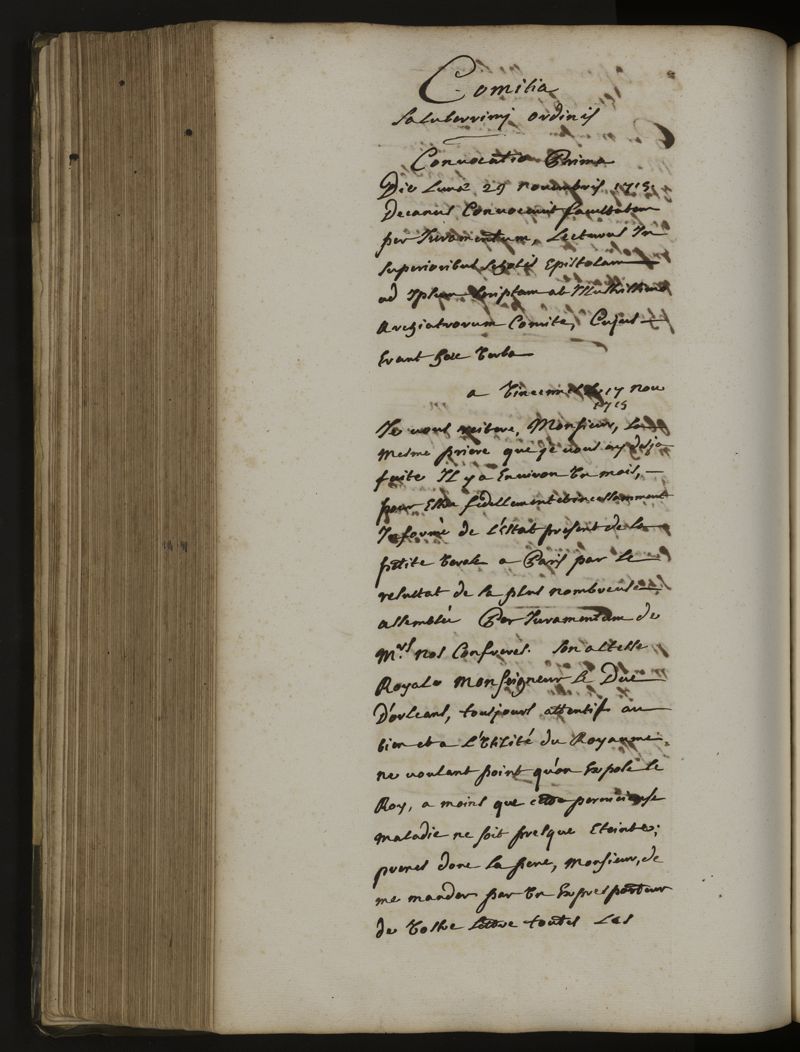 Comitia
saluberrimj ordinis
Convocatio Prima
Die Lunæ 25 novembris 1715
Decanus Convocavit facultatem
per Juramentum, Lecturus In
superioribus scholis Epistolam
ad Ipsum scriptam ab
Archiatrorum Comite, Cujus
Erant hæc verba
a Vincennes le 17 nov
1715
Je vous reitere, Monsieur, La
mesme priere que je vous ay desja
faite Il y a Environ Un mois,
pour Estre fidellement et incessamment
Informé de L'Estat present de la
petite verole a Paris par Le
resultat de la plus nombreuse
assemblée Per Juramentum de
Mrs Nos Confreres. Son altesse
Royale Monseigneur Le Duc
D'orleans, toujours attentif au
bien et a L'Utilité du Royaume
ne voulant point qu'on Expose Le
Roy, a moins que cette pernicieuse
maladie ne soit presque Eteinte;
prenes donc La peine, Monsieur, de
me mander par Un Expres porteur
de Vostre Lettre toutes Les